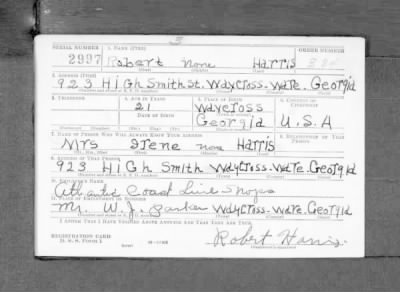 SERIAL NUMBER 1. NAME (Print) ORDER NUMBER
2997 Robert none Harris
(First) (Middle) (Last)
2. ADDRESS (Print)
923 HiGh Smith St. Waycross. Ware. Georgia
3. TELEPHONE 4. AGE IN YEARS 5. PLACE OF BIRTH 6. COUNTRY OF CITIZENSHIP
21 Waycross
DATE OF BIRTH
Georgia U.S.A
7. NAME OF PERSON WHO WILL ALWAYS KNOW YOUR ADDRESS 8. RELATIONSHIP OF THAT PERSON
Mrs Irene none Harris
(Mr., Mrs., Miss) (First) (Middle) (Last)
9. ADDRESS OF THAT PERSON
923 HiGh Smith Waycross. Ware. Georgia
10. EMPLOYER'S NAME
Atlantic Coast Line Shops
11. PLACE OF EMPLOYMENT OR BUSINESS
Mr. W. J. Parker Waycross. Ware. Georgia
I AFFIRM THAT I HAVE VERIFIED ABOVE ANSWERS AND THAT THEY ARE TRUE.
REGISTRATION CARD
D. S. S. FORM 1
Robert Harris.
(Registrant's signature)